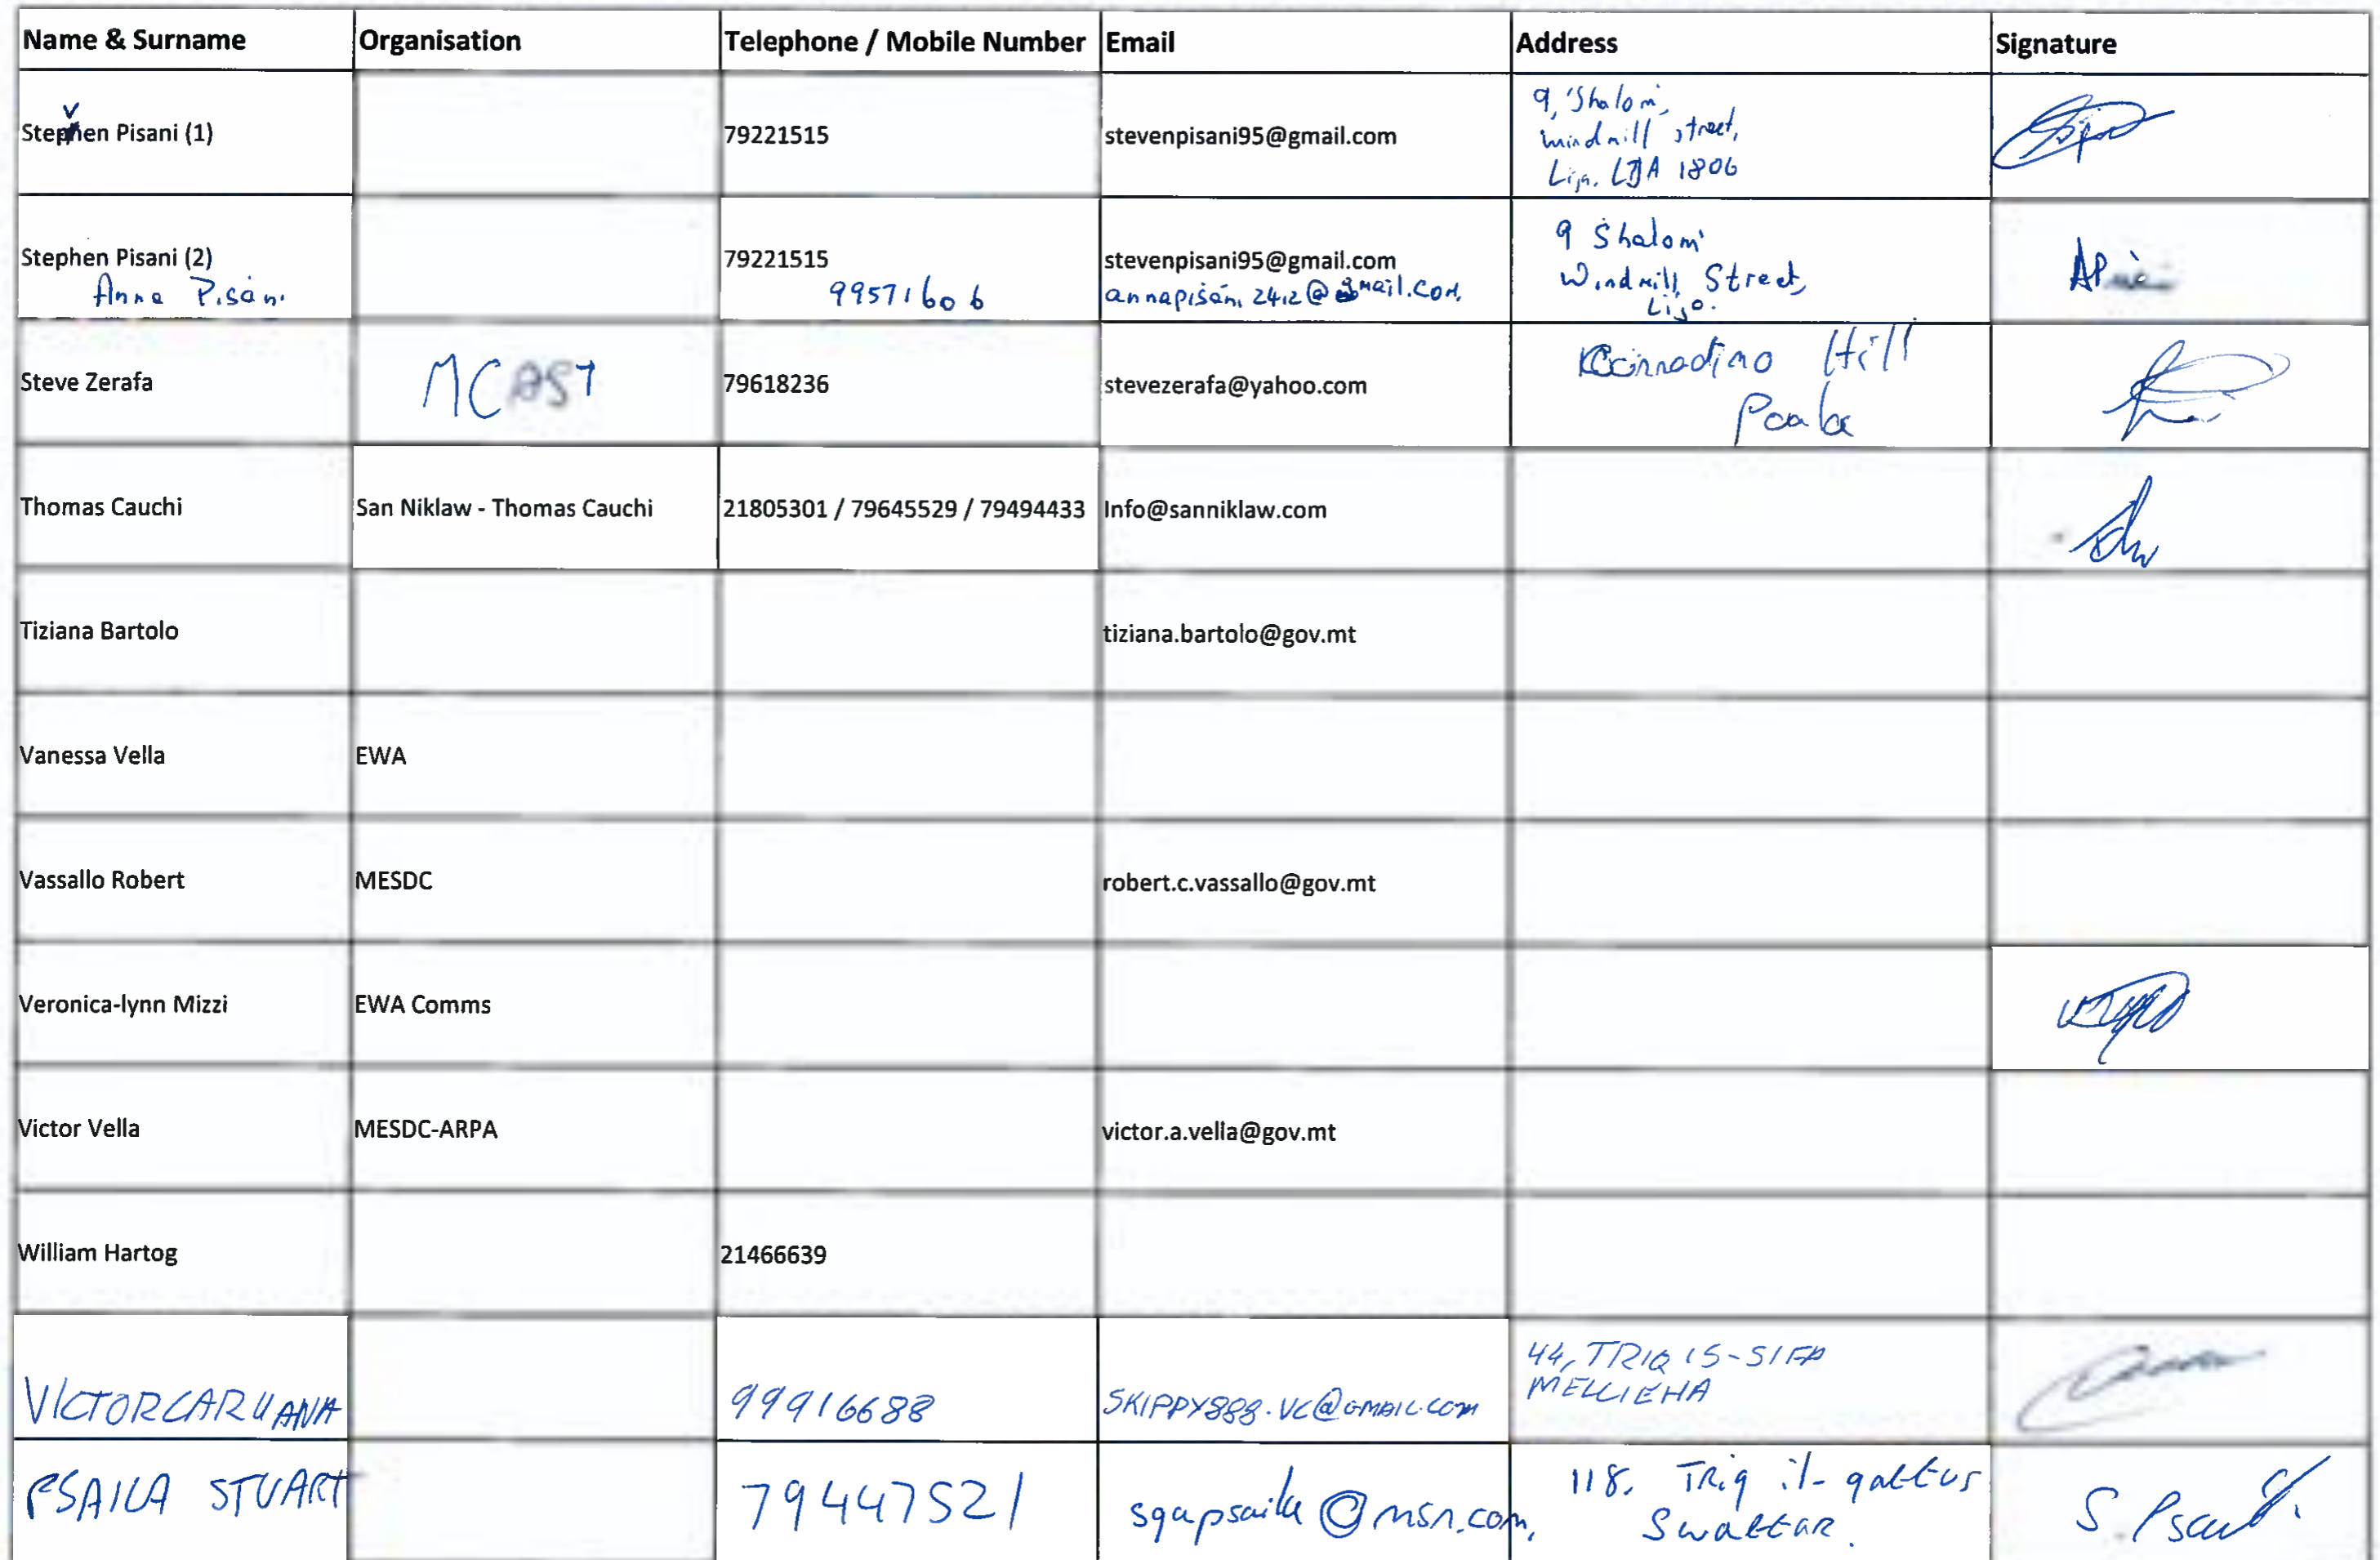 Name & Surname Organisation Telephone / Mobile Number Email Address Signature
v
Stephen Pisani (1) 79221515 stevenpisani95@gmail.com 9, 'Shalom',
windmill street,
Lija. LJA 1806
Stephen Pisani (2) 79221515 stevenpisani95@gmail.com 9 Shalom'
Anna Pisani 99571606 annapisani2412@gmail.com Windmill Street,
Lija.
Steve Zerafa MCAST 79618236 stevezerafa@yahoo.com Hill
Paola
Thomas Cauchi San Niklaw - Thomas Cauchi 21805301 / 79645529 / 79494433 Info@sanniklaw.com
Tiziana Bartolo tiziana.bartolo@gov.mt
Vanessa Vella EWA
Vassallo Robert MESDC robert.c.vassallo@gov.mt
Veronica-lynn Mizzi EWA Comms
Victor Vella MESDC-ARPA victor.a.vella@gov.mt
William Hartog 21466639
VICTOR CARUANA 99916688 SKIPPY888.VC@GMAIL.COM 44, TRIQ IS-SIFA
MELLIEHA
PSAILA STUART 79447521 sgapsaila@msn.com, 118. TRiq il-qattus
Swattar. S. Psaila